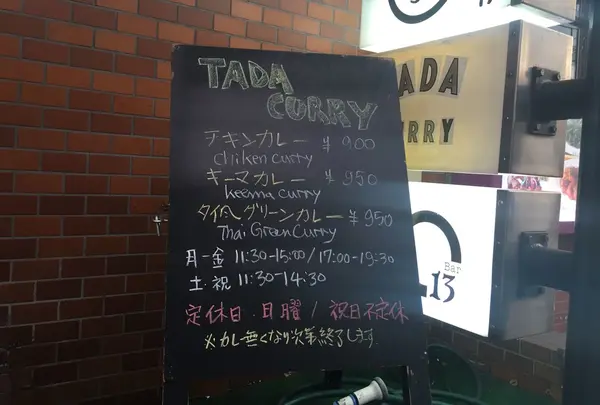 TADA
CURRY
チキンカレー ¥900
Chiken curry
キーマカレー ¥950
keema curry
タイ風グリーンカレー ¥950
Thai Green Curry
月-金 11:30-15:00/17:00-19:30
土・祝 11:30-14:30
定休日 日曜/祝日不定休
※カレー無くなり次第終了します。
ADA
URRY
Bar
13